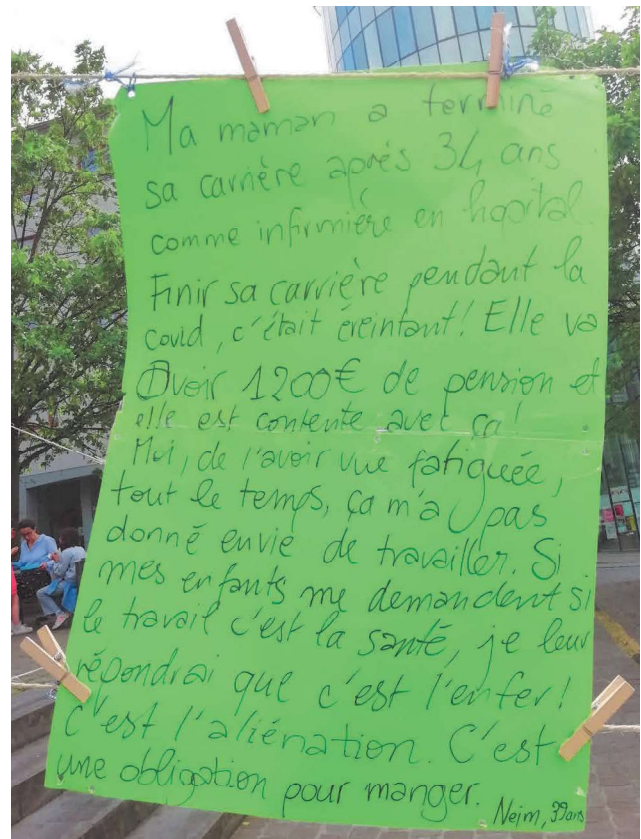 Ma maman a terminé
sa carrière après 34 ans
comme infirmière en hopital.
Finir sa carrière pendant la
covid, c'était éreintant! Elle va
Avoir 1200€ de pension et
elle est contente avec ça!
Moi, de l'avoir vue fatiguée,
tout le temps, ça m'a pas
donné envie de travailler. Si
mes enfants me demandent si
le travail c'est la santé, je leur
répondrai que c'est l'enfer!
C'est l'aliénation. C'est
une obligation pour manger.
Nejm, 39 ans